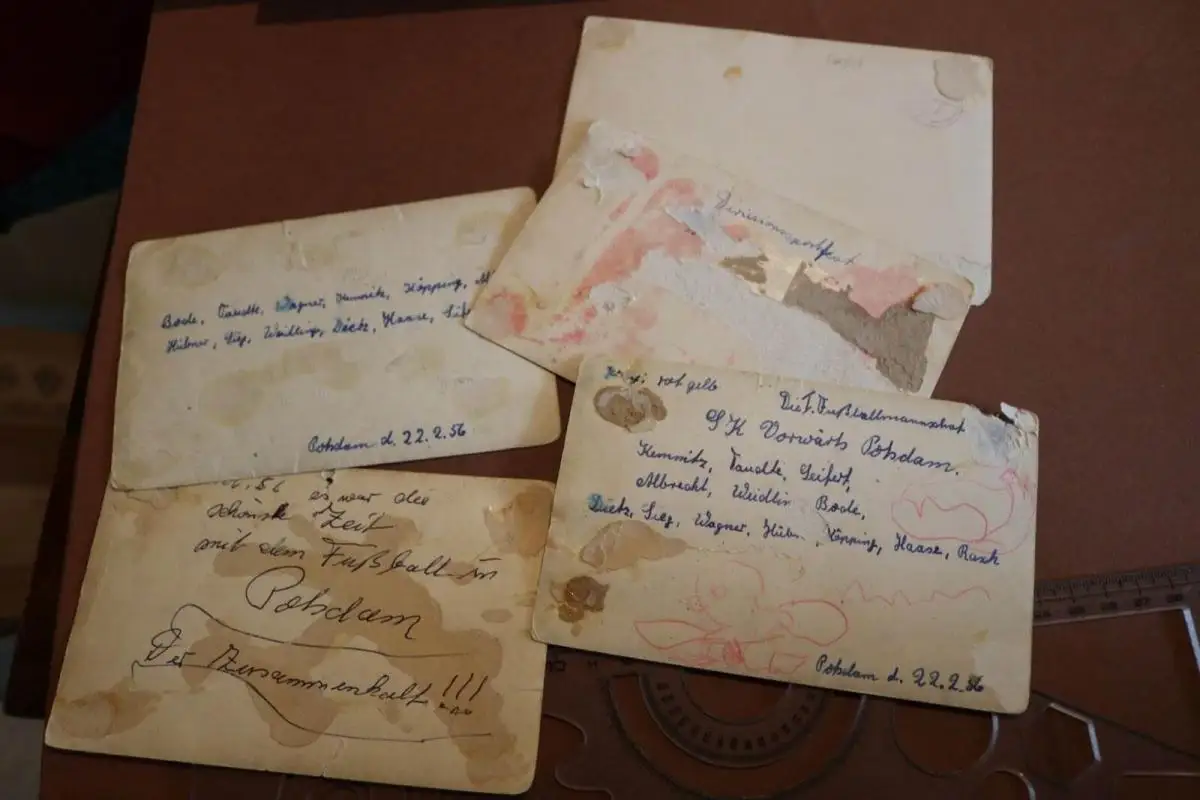 Divisionssportfest
Bode, Taudte, Wagner, Kemnitz, Köpping,
Hübner, Sieg, Weidling, Dietz, Haase,
Potsdam d. 22.2.56
rot gelb
Die 1. Fußballmannschaf
SK Vorwärts Potsdam.
Kemnitz, Taudte, Seifert,
Albrecht, Weidlin Bode,
Dietz, Sieg, Wagner, Hübn , Köpping, Haase, Rasch
Potsdam d. 22.2.56
es war die
schönste Zeit
mit dem Fußball in
Potsdam
Der Zusammenhalt!!!